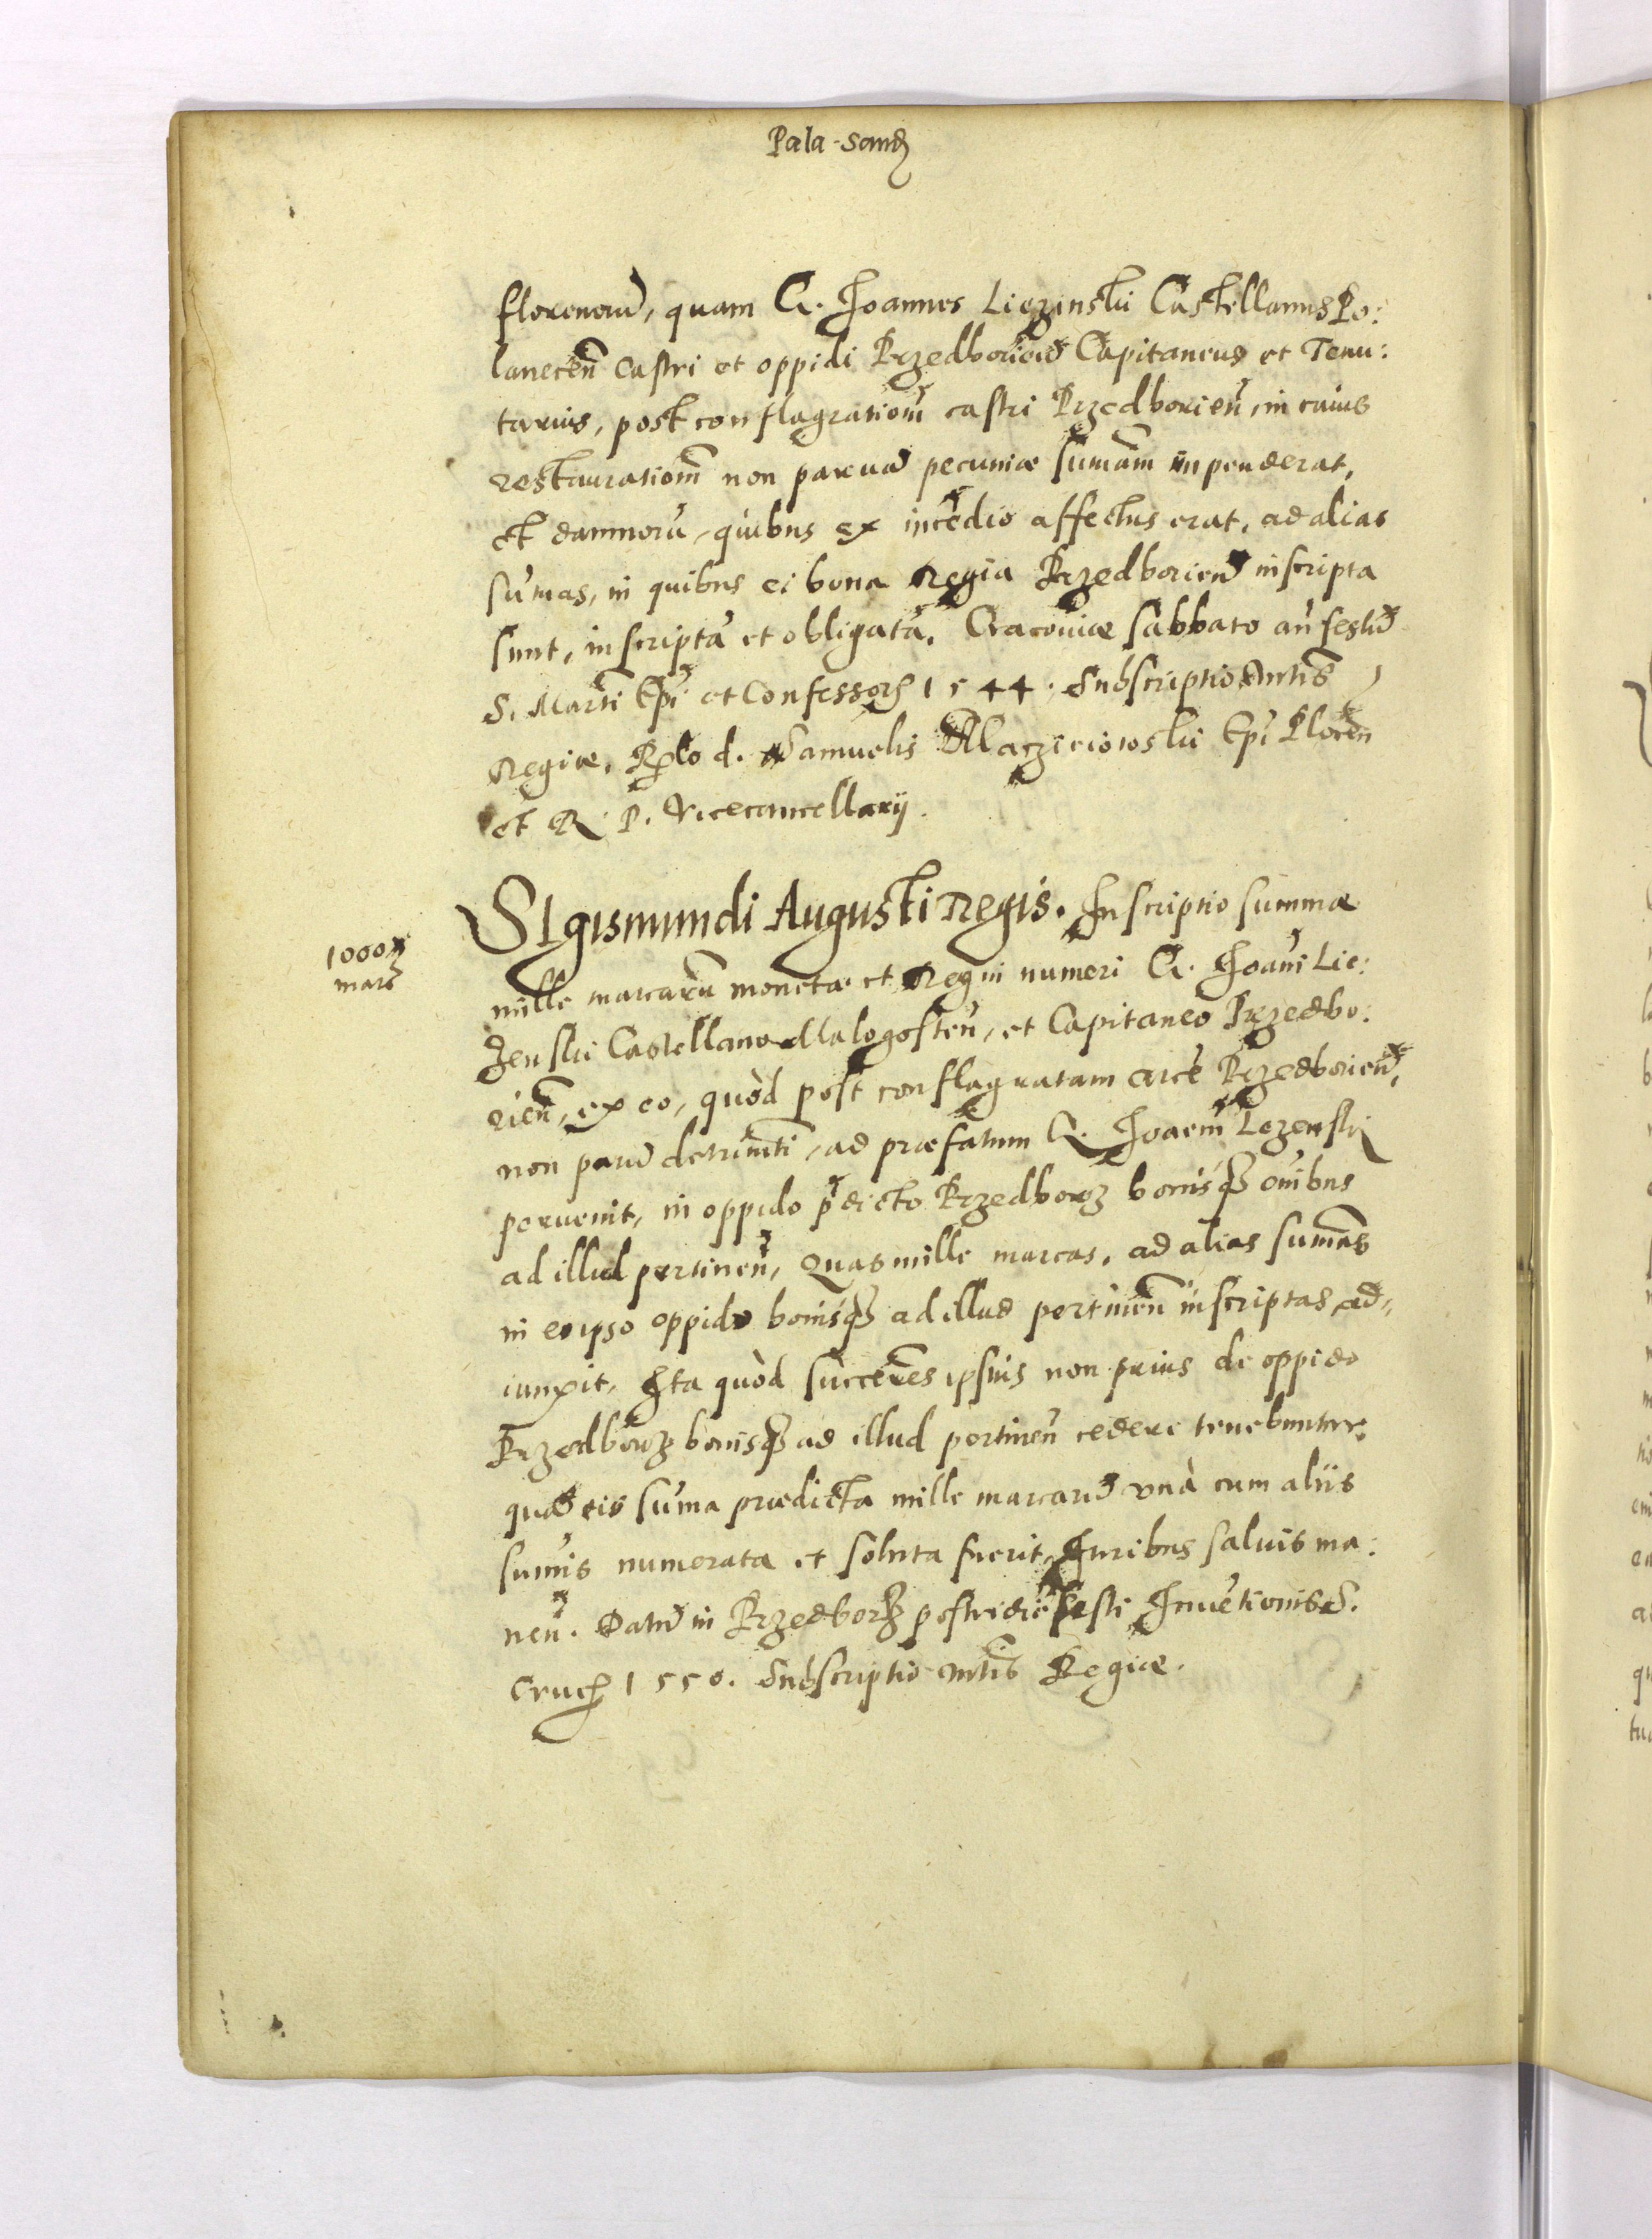 Pala-Sand
florenorū, quam G. Joannes Liezinskii Castellanus Po:
lanecen̄ Castri et oppidi Przedborien̄ Capitaneus et Tenu:
tarius, post conflagrationē castri Przedborien̄, in cuius
restaurationē non paruā pecuniæ sum̄am impenderat,
et damnorū, quibus ex incēdio affectus erat, ad alias
sum̄as, in quibus ei bona Regia Przedborien̄ inscripta
sunt, inscriptā et obligatā. Cracouiæ sabbato an̄ festū
S. Martī Ep̄i et Confessor 1544. Subscriptio Mtis
Regiæ. Rlo d. Samuelis Macziciowskii Ep̄i Plocen̄
et R. P. Vicecancellarij.
SIgismundi Augusti Regis. Inscriptio summæ
1000
marc
mille marcarū monetæ et Regni numeri G. Joan̄i Lie:
zenskii Castellano Malogosten̄, et Capitaneo Przedbo:
rien̄, ex eo, quòd post conflagratam arcē Przedborien̄,
non parū detrimti, ad præfatum G. Joanem̄ Lezenskj
peruenit, in oppido p̄dicto Przedborz bonisq3 om̄ibus
ad illud pertinen̄, Quas mille marcas, ad alias sum̄as
in eo ipso oppido bonisq3 ad illud pertinen̄ inscriptas, ad,,
iunxit, Ita quòd succeres ipsius non prius de oppido
Przedborz bonisq3 ad illud pertinen̄ cedere tenebuntur:
quā eis sum̄a prædicta mille marcarū unà cum aliis
sum̄is numerata et soluta fuerit, Juribus saluis ma:
nen̄. Datū in Przedborz postridie festi Inuētionis S.
Cruc 1550. Subscriptio Mtis Regiæ.